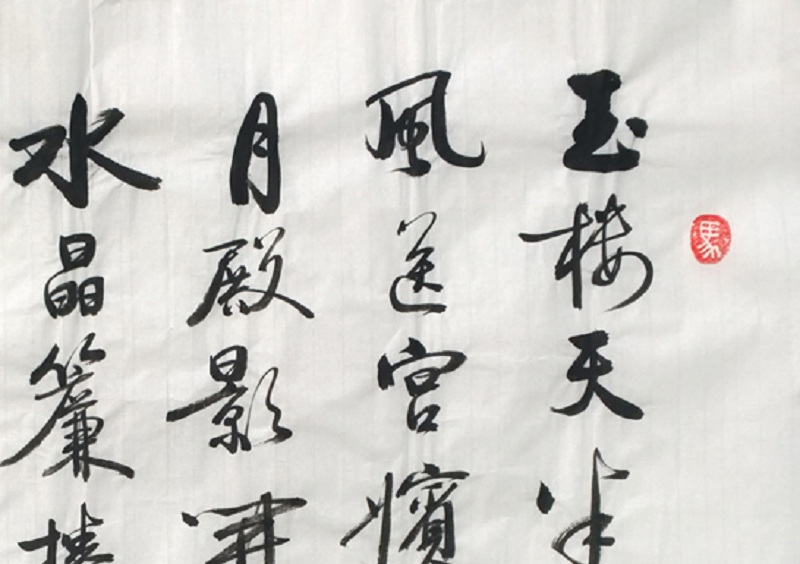 玉楼天半
風送宮嬪
月殿影開
水晶簾捲
馬